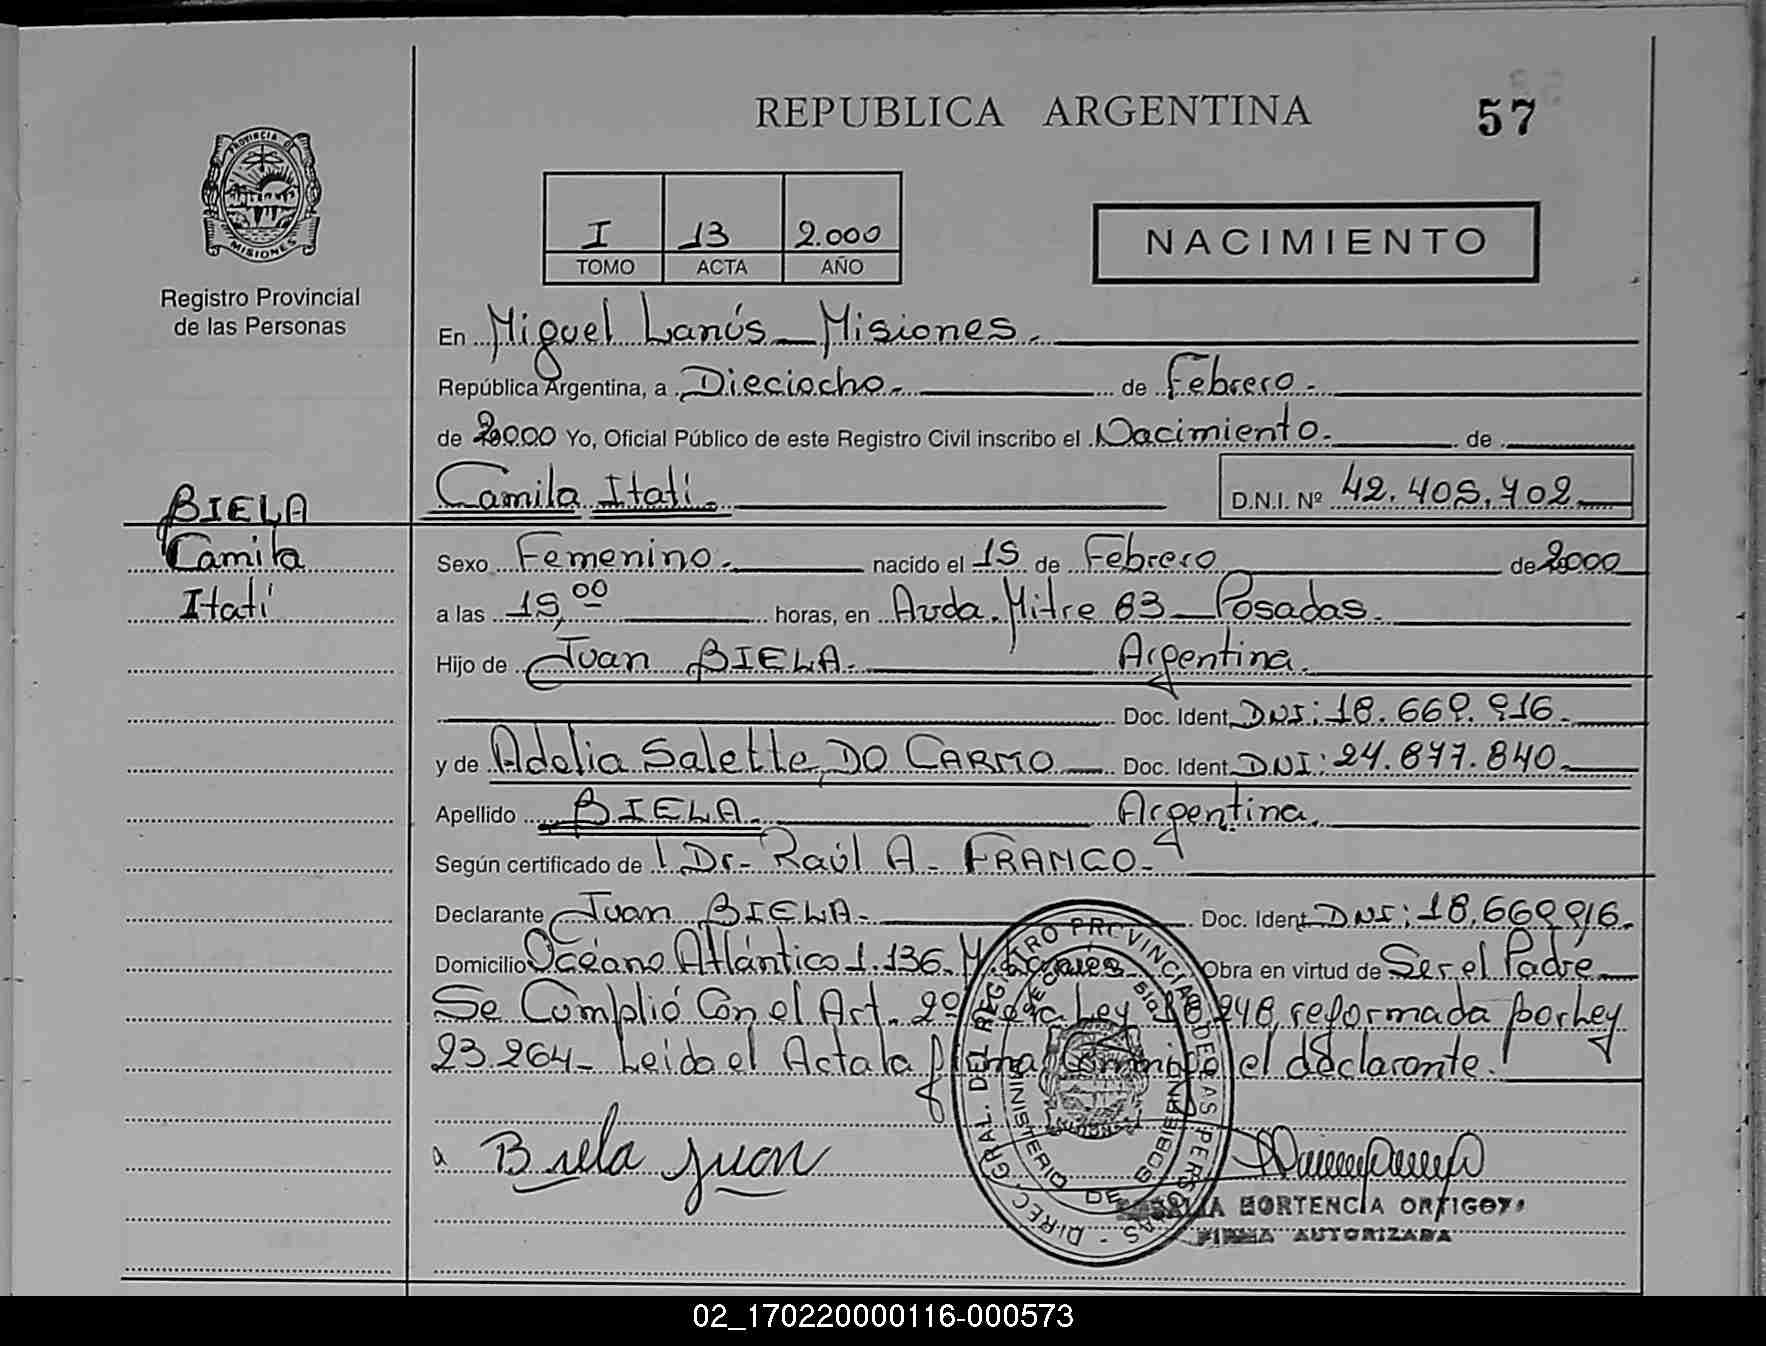 REPUBLICA ARGENTINA
57
PROVINCIA DE
MISIONES
Registro Provincial
de las Personas
I 13 2.000
TOMO ACTA AÑO
NACIMIENTO
En Miguel Lanús - Misiones.
República Argentina, a Dieciocho. de Febrero.
de 2000 Yo, Oficial Público de este Registro Civil inscribo el Nacimiento. de
Camila Itatí. D.N.I. Nº
BIELA
Camila
Itatí
Sexo Femenino. nacido el 15 de Febrero de 2000
a las 15,00 horas, en Avda. Mitre 63 - Posadas.
Hijo de Juan BIELA. Argentina.
Doc. Ident DNI:
y de Adelia Salette DO CARMO Doc. Ident DNI: 24.877.840.
Apellido BIELA. Argentina.
Según certificado de Dr. Raúl A. FRANCO.
Declarante Juan BIELA. Doc. Ident DNI:
Domicilio Océano Atlántico 1.136. Obra en virtud de Ser el Padre
Se Cumplió Con el Art. 2º Ley reformada por Ley
23.264 - Leida el Acta la firma Conmigo el declarante.
Biela Juan
DIREC. GRAL. DEL REGISTRO PROVINCIAL DE LAS PERSONAS
MINISTERIO DE GOBIERNO
HORTENCIA ORTIGOZA
FIRMA AUTORIZADA
02_170220000116-000573